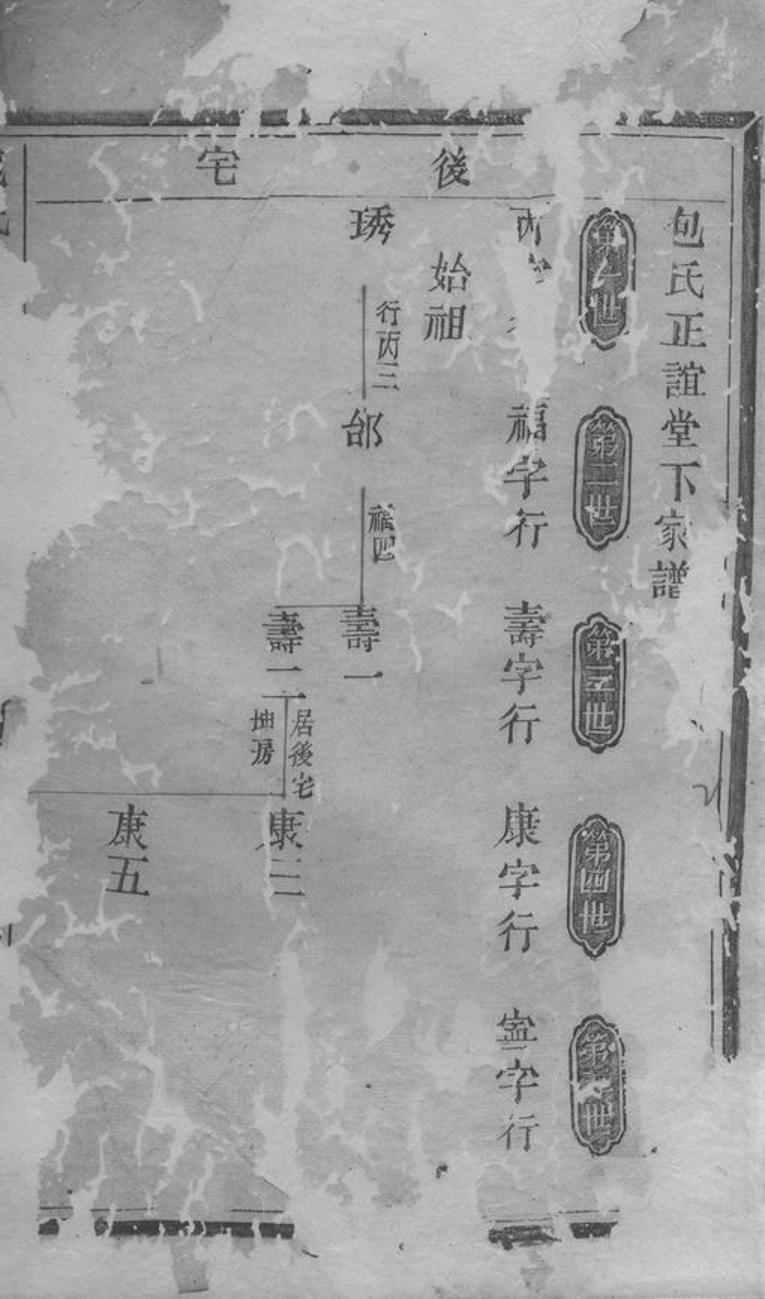 包氏正誼堂下家譜
後宅
第一世
第二世
第三世
第四世
第五世
丙
福字行
壽字行
康字行
寍字行
始祖
琇
行丙三
邰
福四
壽一
壽二
居後宅
坤房
康三
康五